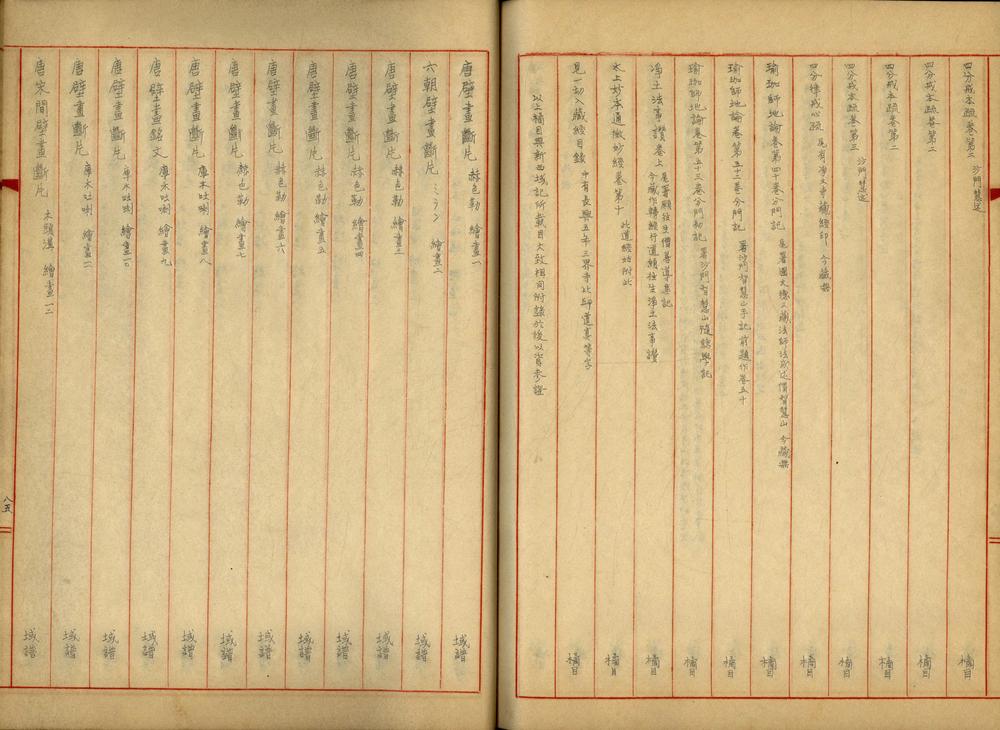 四分戒本疏卷第二 沙門慧述 橘目
四分戒本疏卷第二 橘目
四分戒本疏卷第二 橘目
四分戒本疏卷第三 沙門慧述 橘目
四分律戒心疏 尾有淨土寺藏經印 今藏 橘目
瑜珈師地論卷第四十卷分門記 尾署國大德三藏法師法成述僧智慧山 今藏 橘目
瑜珈師地論卷第五十二卷分門記 署沙門智慧山手記前題作卷五十 橘目
瑜珈師地論卷第五十三卷分門初記 署沙門智慧山隨聽學記 橘目
淨土法事讚卷上 尾署願往生僧善導集記 今藏作轉經行道願往生淨土法事讚 橘目
太上妙本通微妙經卷第十 此道經始附此 橘目
見一切入藏經目錄 中有長興五年三界寺比邱道真等字 橘目
以上橘目與新西域記所載目大致相同附錄於後以資參證
唐壁畫斷片 赫色勒 繪畫一 域譜
六朝壁畫斷片 ミラン 繪畫二 域譜
唐壁畫斷片 赫色勒 繪畫三 域譜
唐壁畫斷片 赫色勒 繪畫四 域譜
唐壁畫斷片 赫色勒 繪畫五 域譜
唐壁畫斷片 赫色勒 繪畫六 域譜
唐壁畫斷片 赫色勒 繪畫七 域譜
唐壁畫斷片 庫木吐喇 繪畫八 域譜
唐壁畫銘文 庫木吐喇 繪畫九 域譜
唐壁畫斷片 庫木吐喇 繪畫一〇 域譜
唐壁畫斷片 庫木吐喇 繪畫一一 域譜
唐宋間壁畫斷片 木頭溝 繪畫一二 域譜
八五